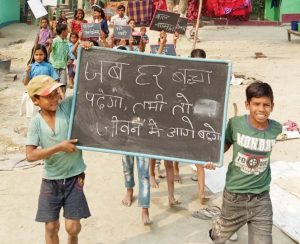 जब हर बच्चा
पढ़ेगा, तभी तो
जीवन में आगे बढ़ेगा